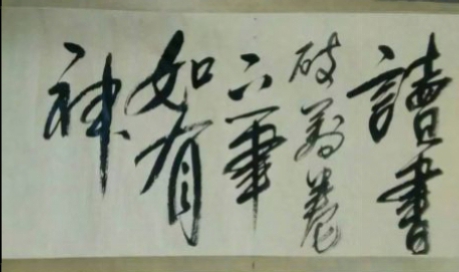 讀書
破萬卷
下筆
如有
神